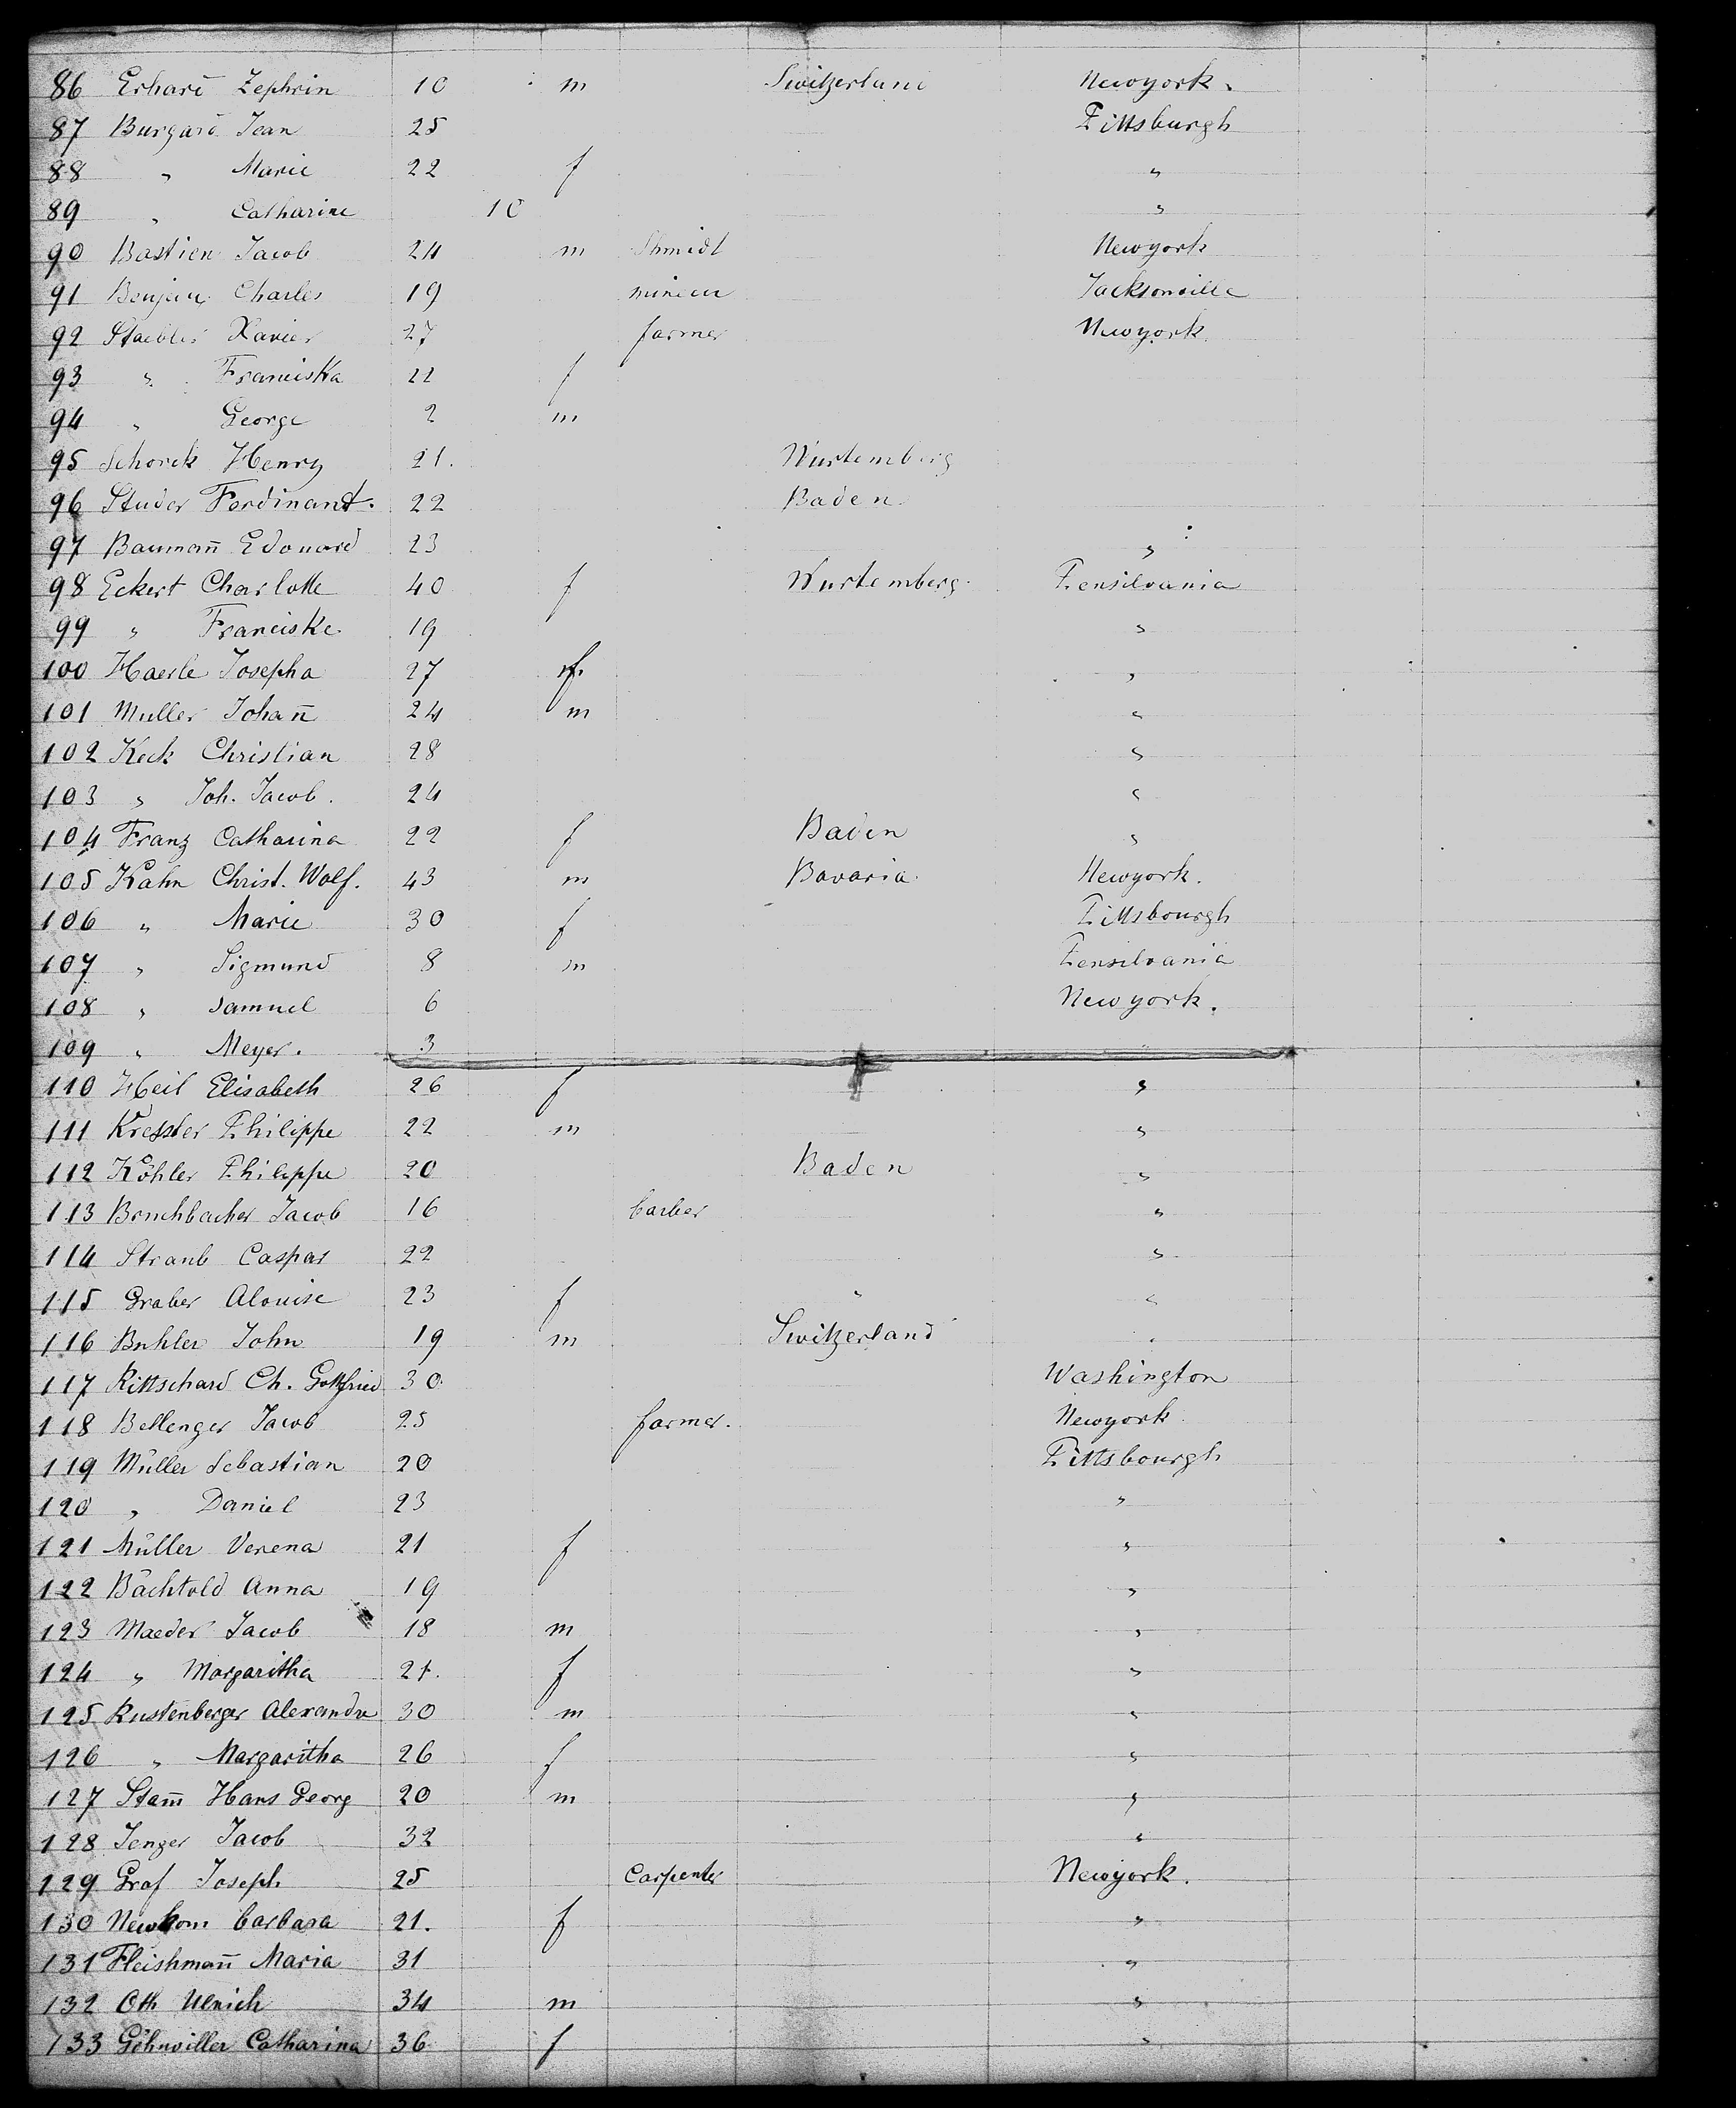 86 Erhard Zephrin 10 m Switzerland Newyork.
87 Burgard Jean 25 Pittsburgh
88 " Marie 22 f "
89 " Catharine 10 "
90 Bastien Jacob 24 m Shmidt Newyork
91 Benjean Charles 19 mineur Jacksonville
92 Staebler Xavier 27 farmer Newyork
93 " Franciska 22 f
94 " George 2 m
95 Schorck Henry 21. Wurtemberg
96 Studer Ferdinant. 22 Baden
97 Baumañ Edouard 23 "
98 Eckert Charlotte 40 f Wurtemberg Pensilvania
99 " Franciske 19 "
100 Haerle Josepha 27 f. "
101 Muller Johañ 24 m "
102 Keck Christian 28 "
103 " Joh. Jacob. 24 "
104 Franz Catharina 22 f Baden "
105 Kahn Christ. Wolf. 43 m Bavaria Newyork.
106 " Marie 30 f Pittsbourgh
107 " Sigmund 8 m Pensilvania
108 " Samuel 6 New york.
109 " Meyer. 3 "
110 Heil Elisabeth 26 f "
111 Kressler Philippe 22 m "
112 Köhler Philippe 20 Baden "
113 Bruchbacher Jacob 16 barber "
114 Straub Caspar 22 "
115 Graber Alouise 23 f " "
116 Buhler John 19 m Switzerland "
117 Rittschard Ch. Gottfried 30 Washington
118 Bellenger Jacob 25 farmer. Newyork
119 Müller Sebastian 20 Pittsbourgh
120 " Daniel 23 "
121 Müller Verena 21 f "
122 Bächtold Anna 19 "
123 Maeder Jacob 18 m "
124 " Margaritha 21. f "
125 Rustenberger Alexandre 30 m "
126 " Margaritha 26 f "
127 Stam̄ Hans Georg 20 m "
128 Jenger Jacob 32 "
129 Graf Joseph 25 Carpenter Newyork.
130 Newkom barbara 21. f "
131 Fleishmañ Maria 31 "
132 Oth Ulrich 34 m "
133 Göhnviller Catharina 36 f "